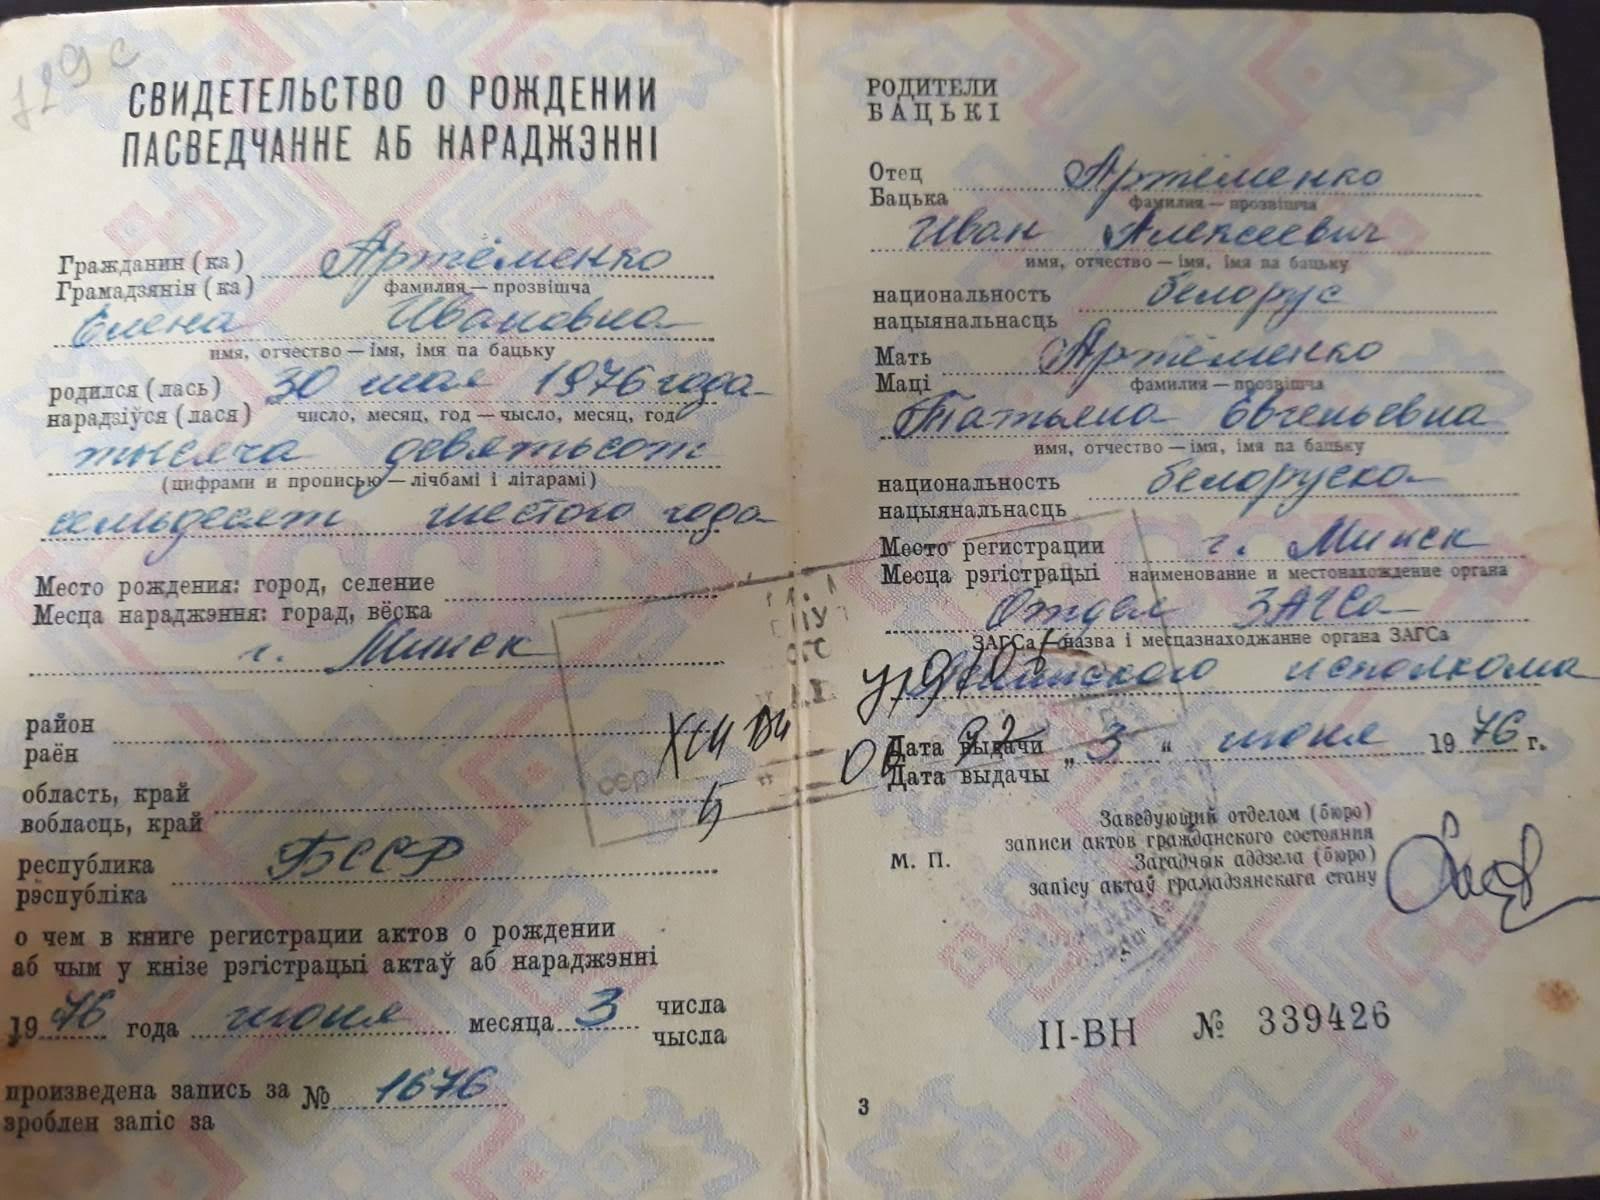 129 с
СВИДЕТЕЛЬСТВО О РОЖДЕНИИ
ПАСВЕДЧАННЕ АБ НАРАДЖЭННІ
Гражданин (ка) Артёменко
Грамадзянін (ка) фамилия — прозвішча
Елена Ивановна
имя, отчество — імя, імя па бацьку
родился (лась) 30 мая 1976 года
нарадзіўся (лася) число, месяц, год — чысло, месяц, год
тысяча девятьсот
(цифрами и прописью — лічбамі і літарамі)
семьдесят шестого года
Место рождения: город, селение
Месца нараджэння: горад, вёска
г. Минск
район
раён
область, край
вобласць, край
республика БССР
рэспубліка
о чем в книге регистрации актов о рождении
аб чым у кнізе рэгістрацыі актаў аб нараджэнні
19 76 года июня месяца 3 числа
чысла
произведена запись за № 1676
зроблен запіс за
РОДИТЕЛИ
БАЦЬКІ
Отец Артёменко
Бацька фамилия — прозвішча
Иван Алексеевич
имя, отчество — імя, імя па бацьку
национальность белорус
нацыянальнасць
Мать Артёменко
Маці фамилия — прозвішча
Татьяна Евгеньевна
имя, отчество — імя, імя па бацьку
национальность белоруска
нацыянальнасць
Место регистрации г. Минск
Месца рэгістрацыі наименование и местонахождение органа
Отдел ЗАГСа
ЗАГСа / назва і месцазнаходжанне органа ЗАГСа
исполкома
Дата выдачи „ 3 “ июня 19 76 г.
Дата выдачы
Заведующий отделом (бюро)
записи актов гражданского состояния
М. П. Загадчык аддзела (бюро)
запісу актаў грамадзянскага стану
II-ВН № 339426
3